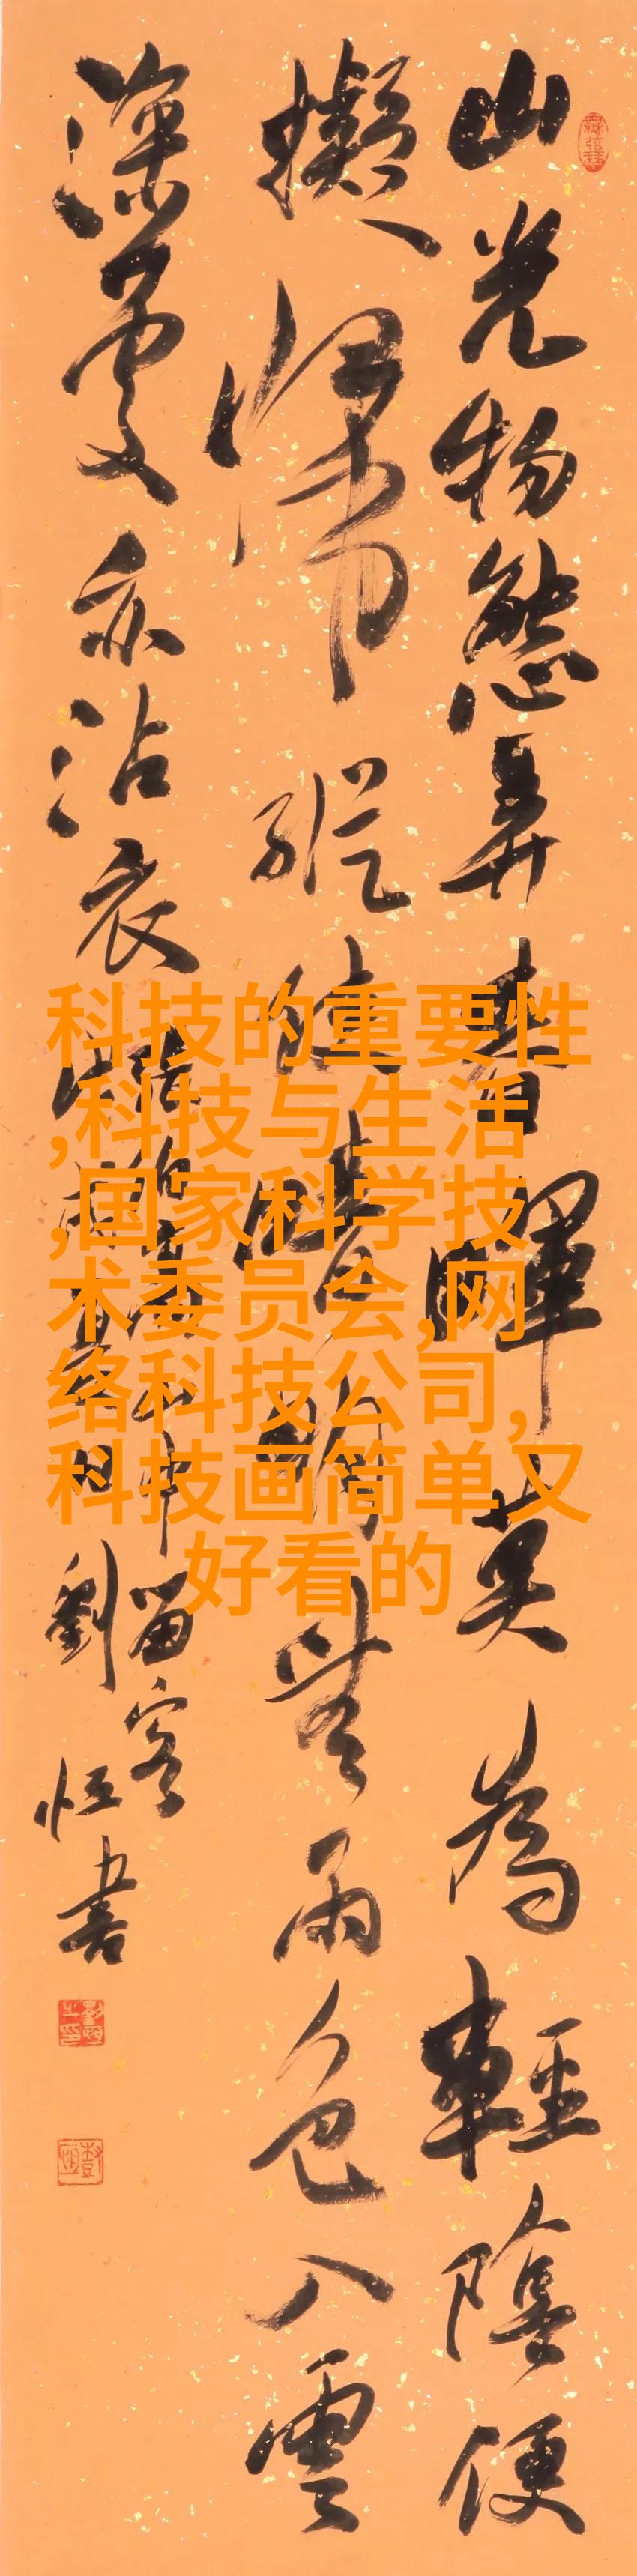 山光物態弄春暉莫為輕陰便
擬歸縱使晴明無雨色入雲
深處亦沾衣
山中留客
劉恒書
科技的重要性
,科技与生活
,国家科学技
术委员会,网
络科技公司,
科技画简单又
好看的